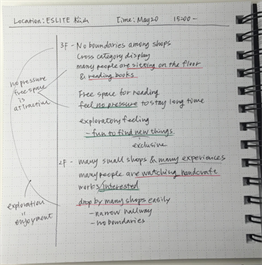 Location: ESLITE Time: May 20 15:00 ~
3F - No boundaries among shops
Cross category display
many people are sitting on the floor
& reading books.
no pressure
free space is
attractive
Free space for reading
feel no pressure to stay long time
exploratory feeling
- fun to find new things
exclusive
2F - many small shops & many experiences
many people are watching handcraft
works interested
drop by many shops easily
- narrow hallway
- no boundaries
exploration
=
enjoyment